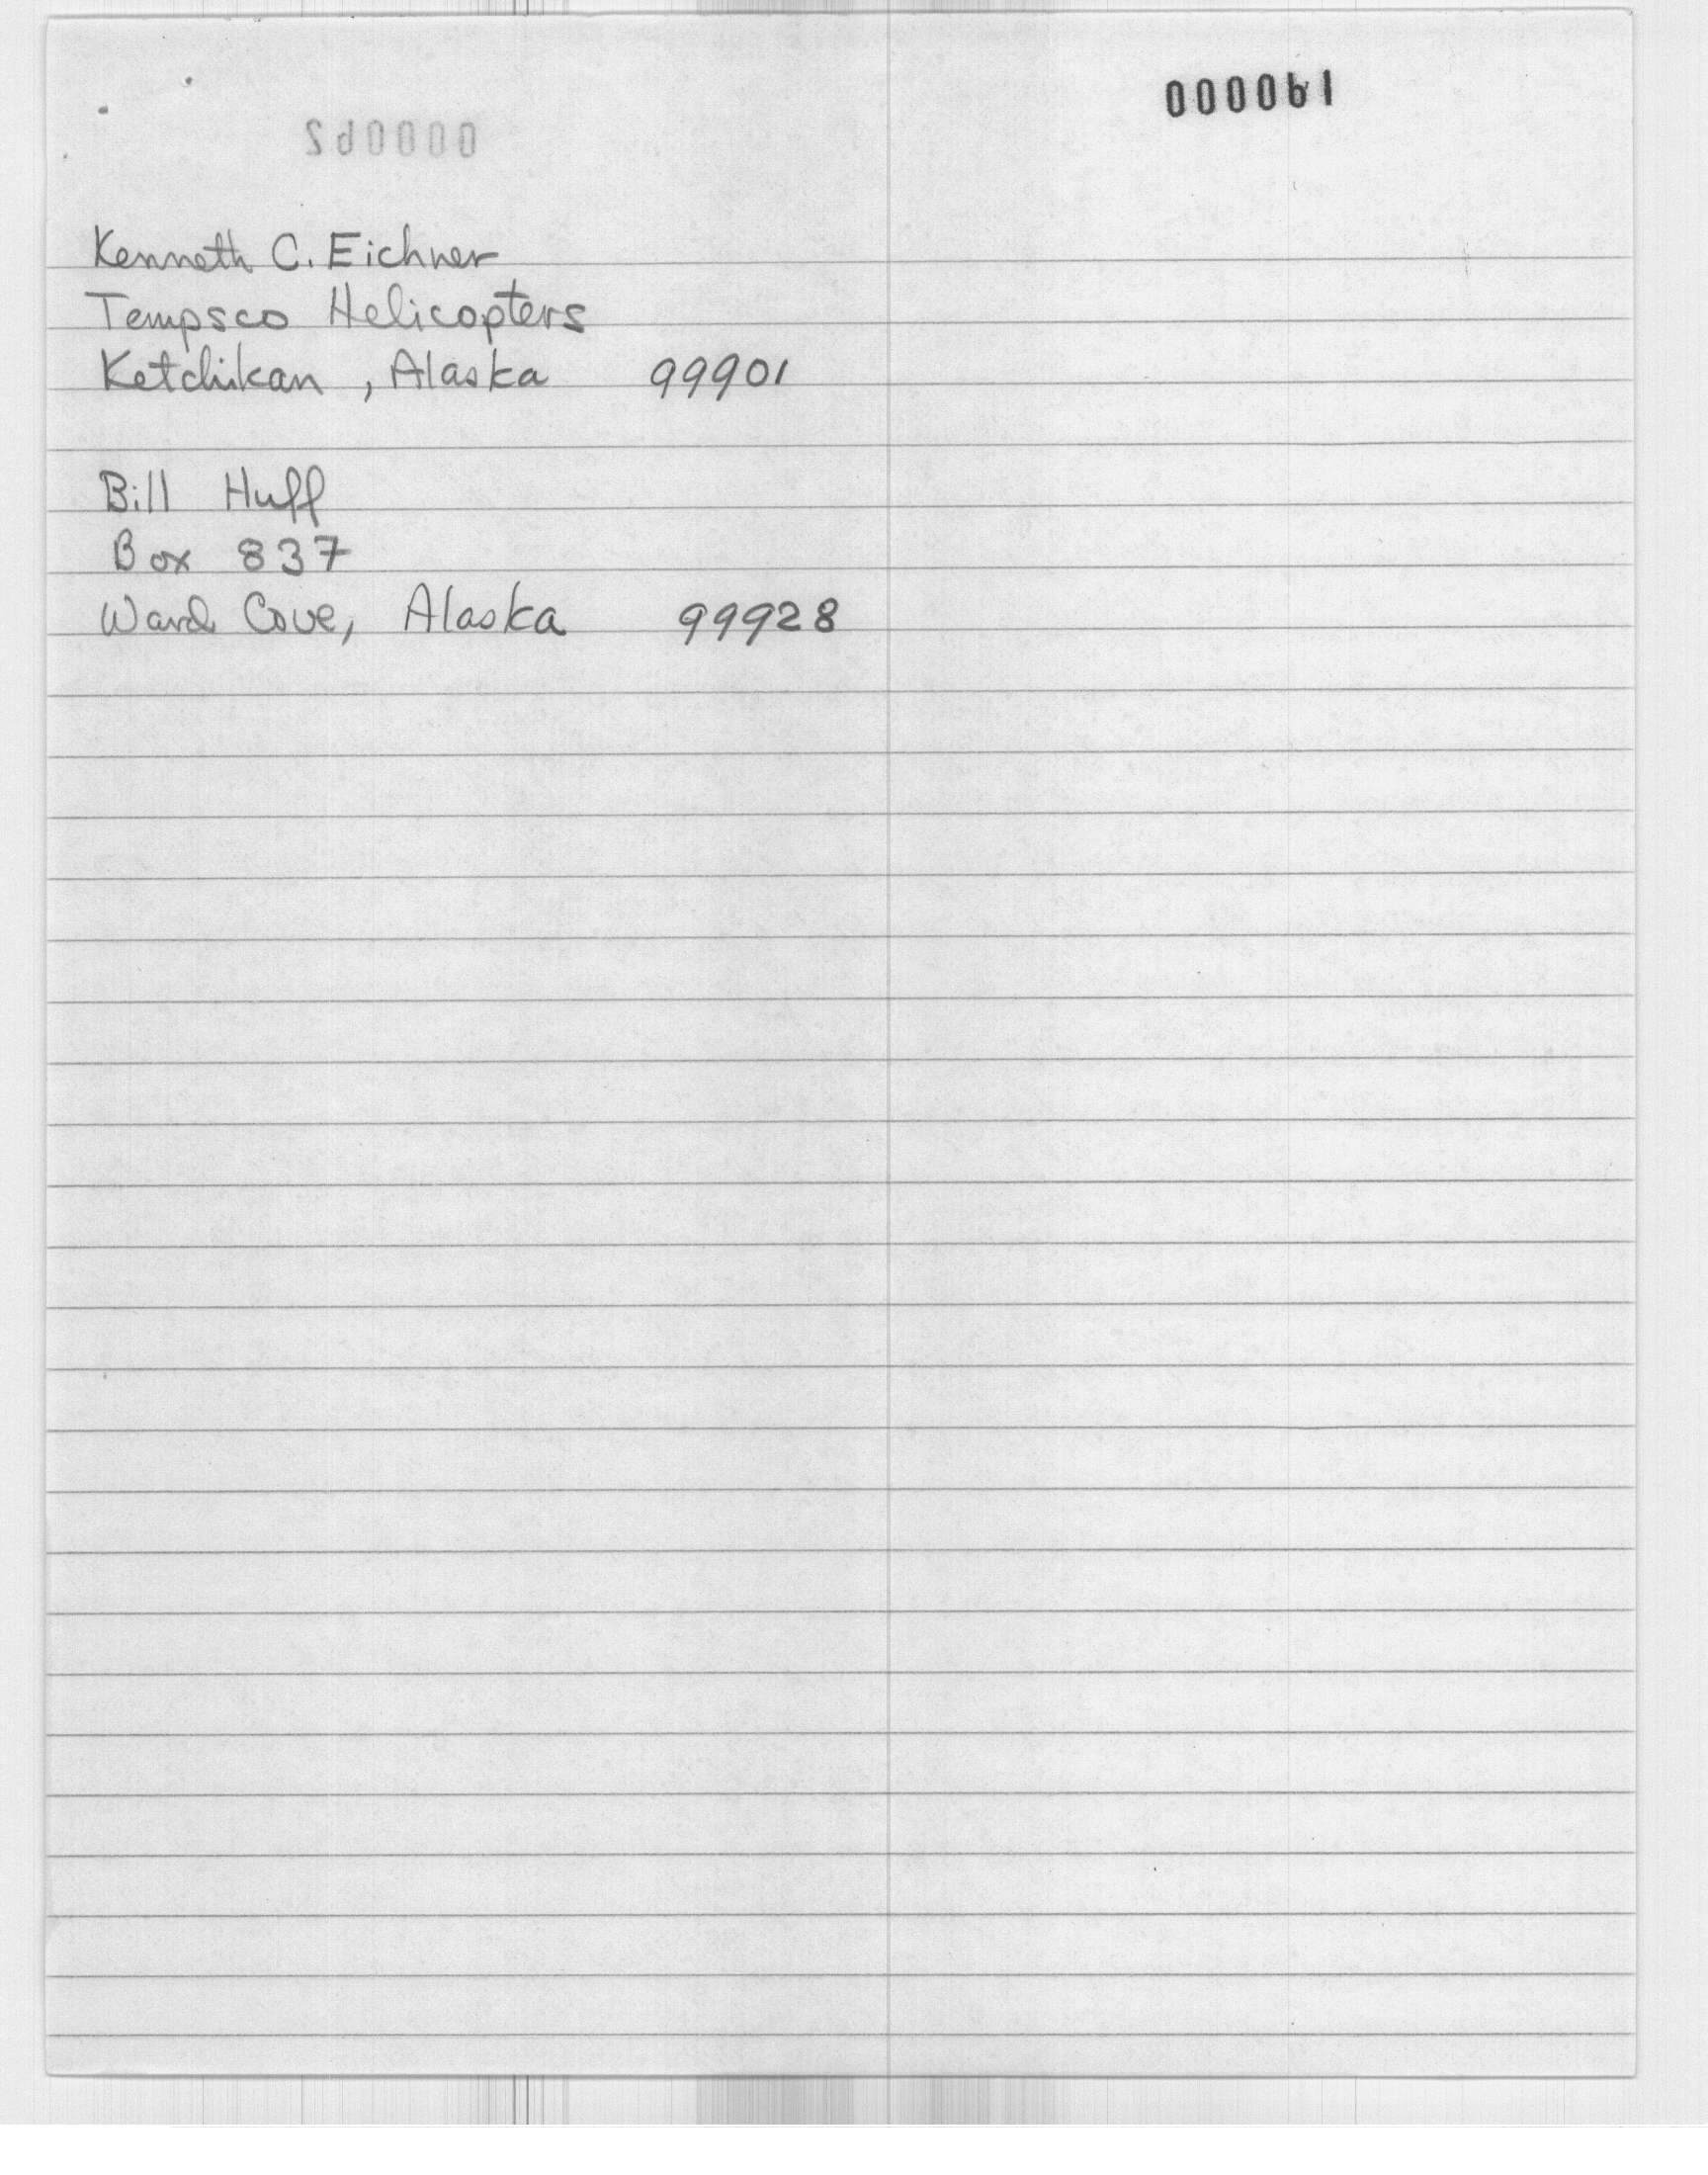 000061
000062
Kenneth C. Eichner
Tempsco Helicopters
Ketchikan, Alaska 99901
Bill Huff
Box 837
Ward Cove, Alaska 99928